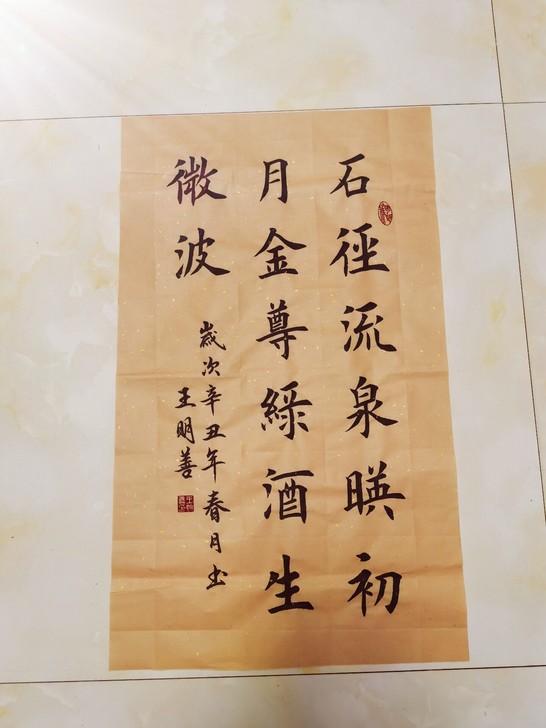 石徑流泉暎初
月金尊綠酒生
微波
歲次辛丑年春月书
王明善